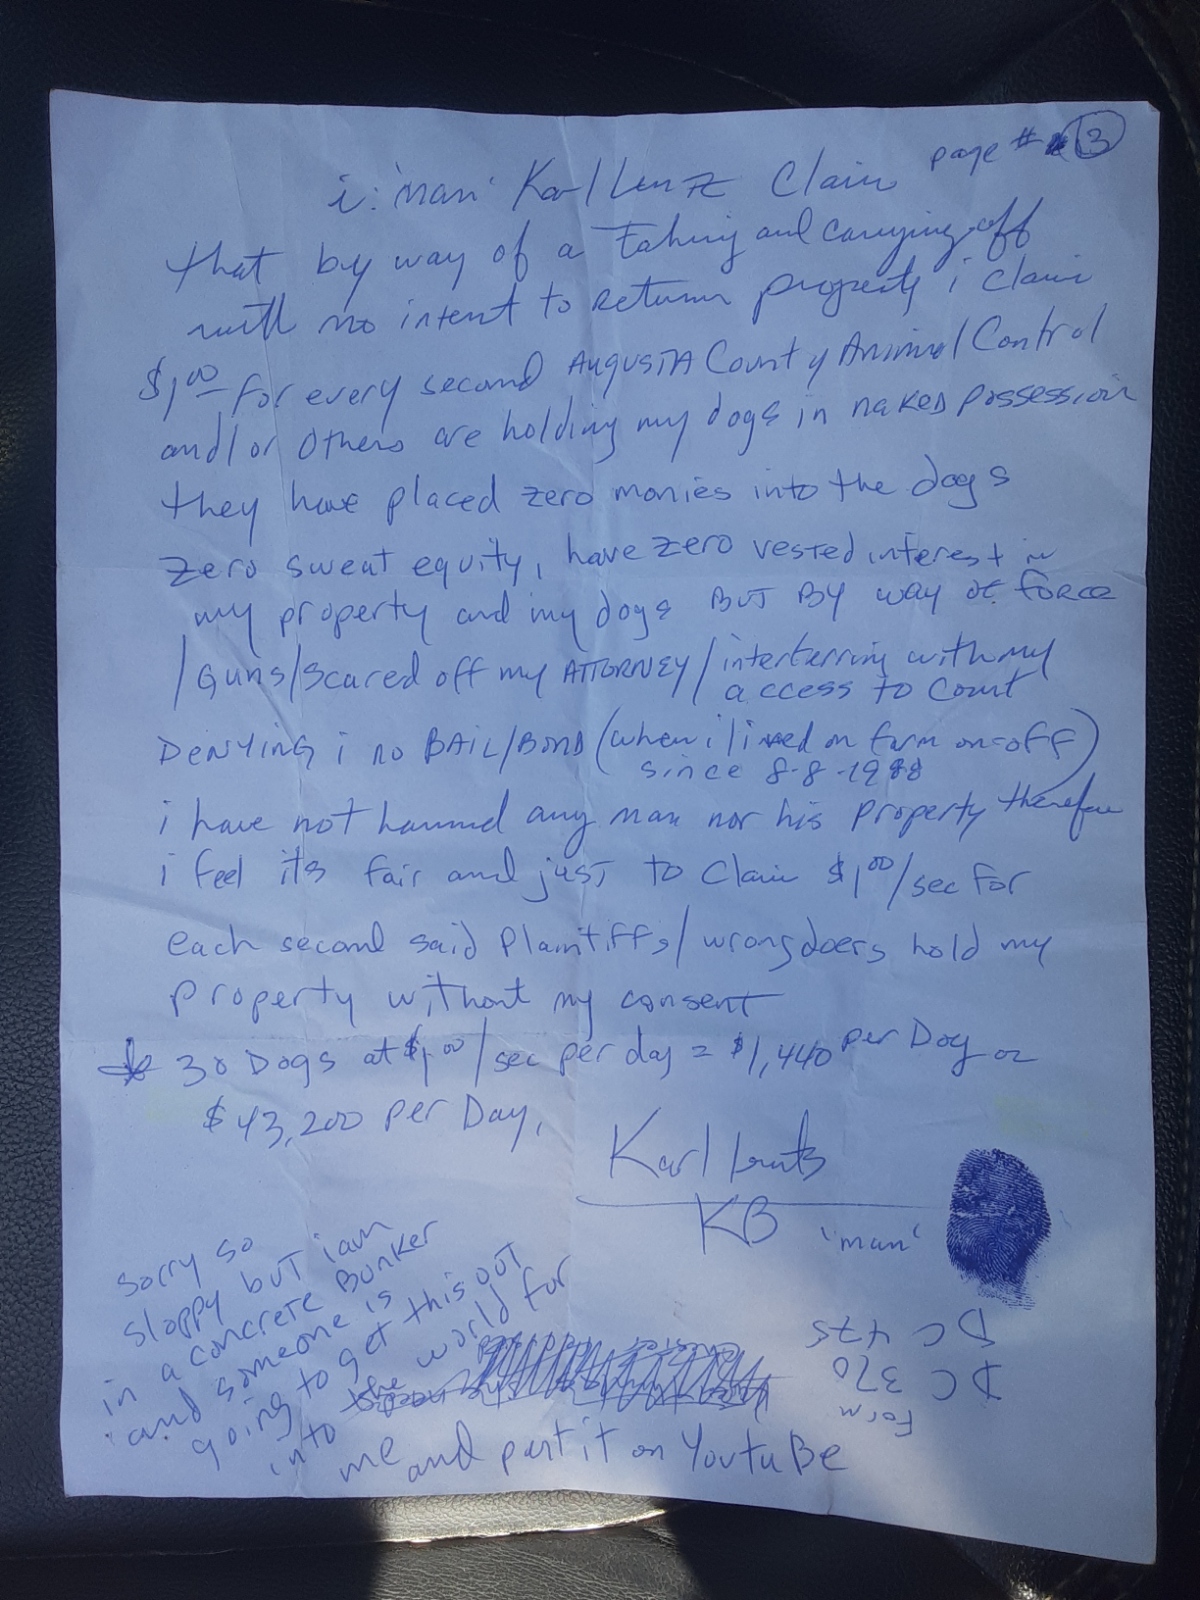 page # 3
i: 'man' Karl Lentz Claim
that by way of a taking and carrying off
with no intent to return property i claim
$1,00 for every second AUGUSTA County Animal Control
and/or others are holding my dogs in naked possession
they have placed zero monies into the dogs
zero sweat equity, have zero vested interest in
my property and my dogs BUT BY way of force
/Guns/scared off my ATTORNEY/interferring with my
access to court
DENYING i no BAIL/BOND (when i lived on farm on-off)
since 8-8-1988
i have not harmed any man nor his property therefore
i feel its fair and just to claim $1,00/sec for
each second said plaintiffs/wrongdoers hold my
property without my consent
30 Dogs at $1,00/sec per day = $1,440 per Dog or
$43,200 per Day,
Karl Lentz
KB 'man'
sorry so
sloppy but i am
in a concrete Bunker
and someone is
going to get this out
into the world for
me and put it on YoutuBe
Form
DC 370
DC 475